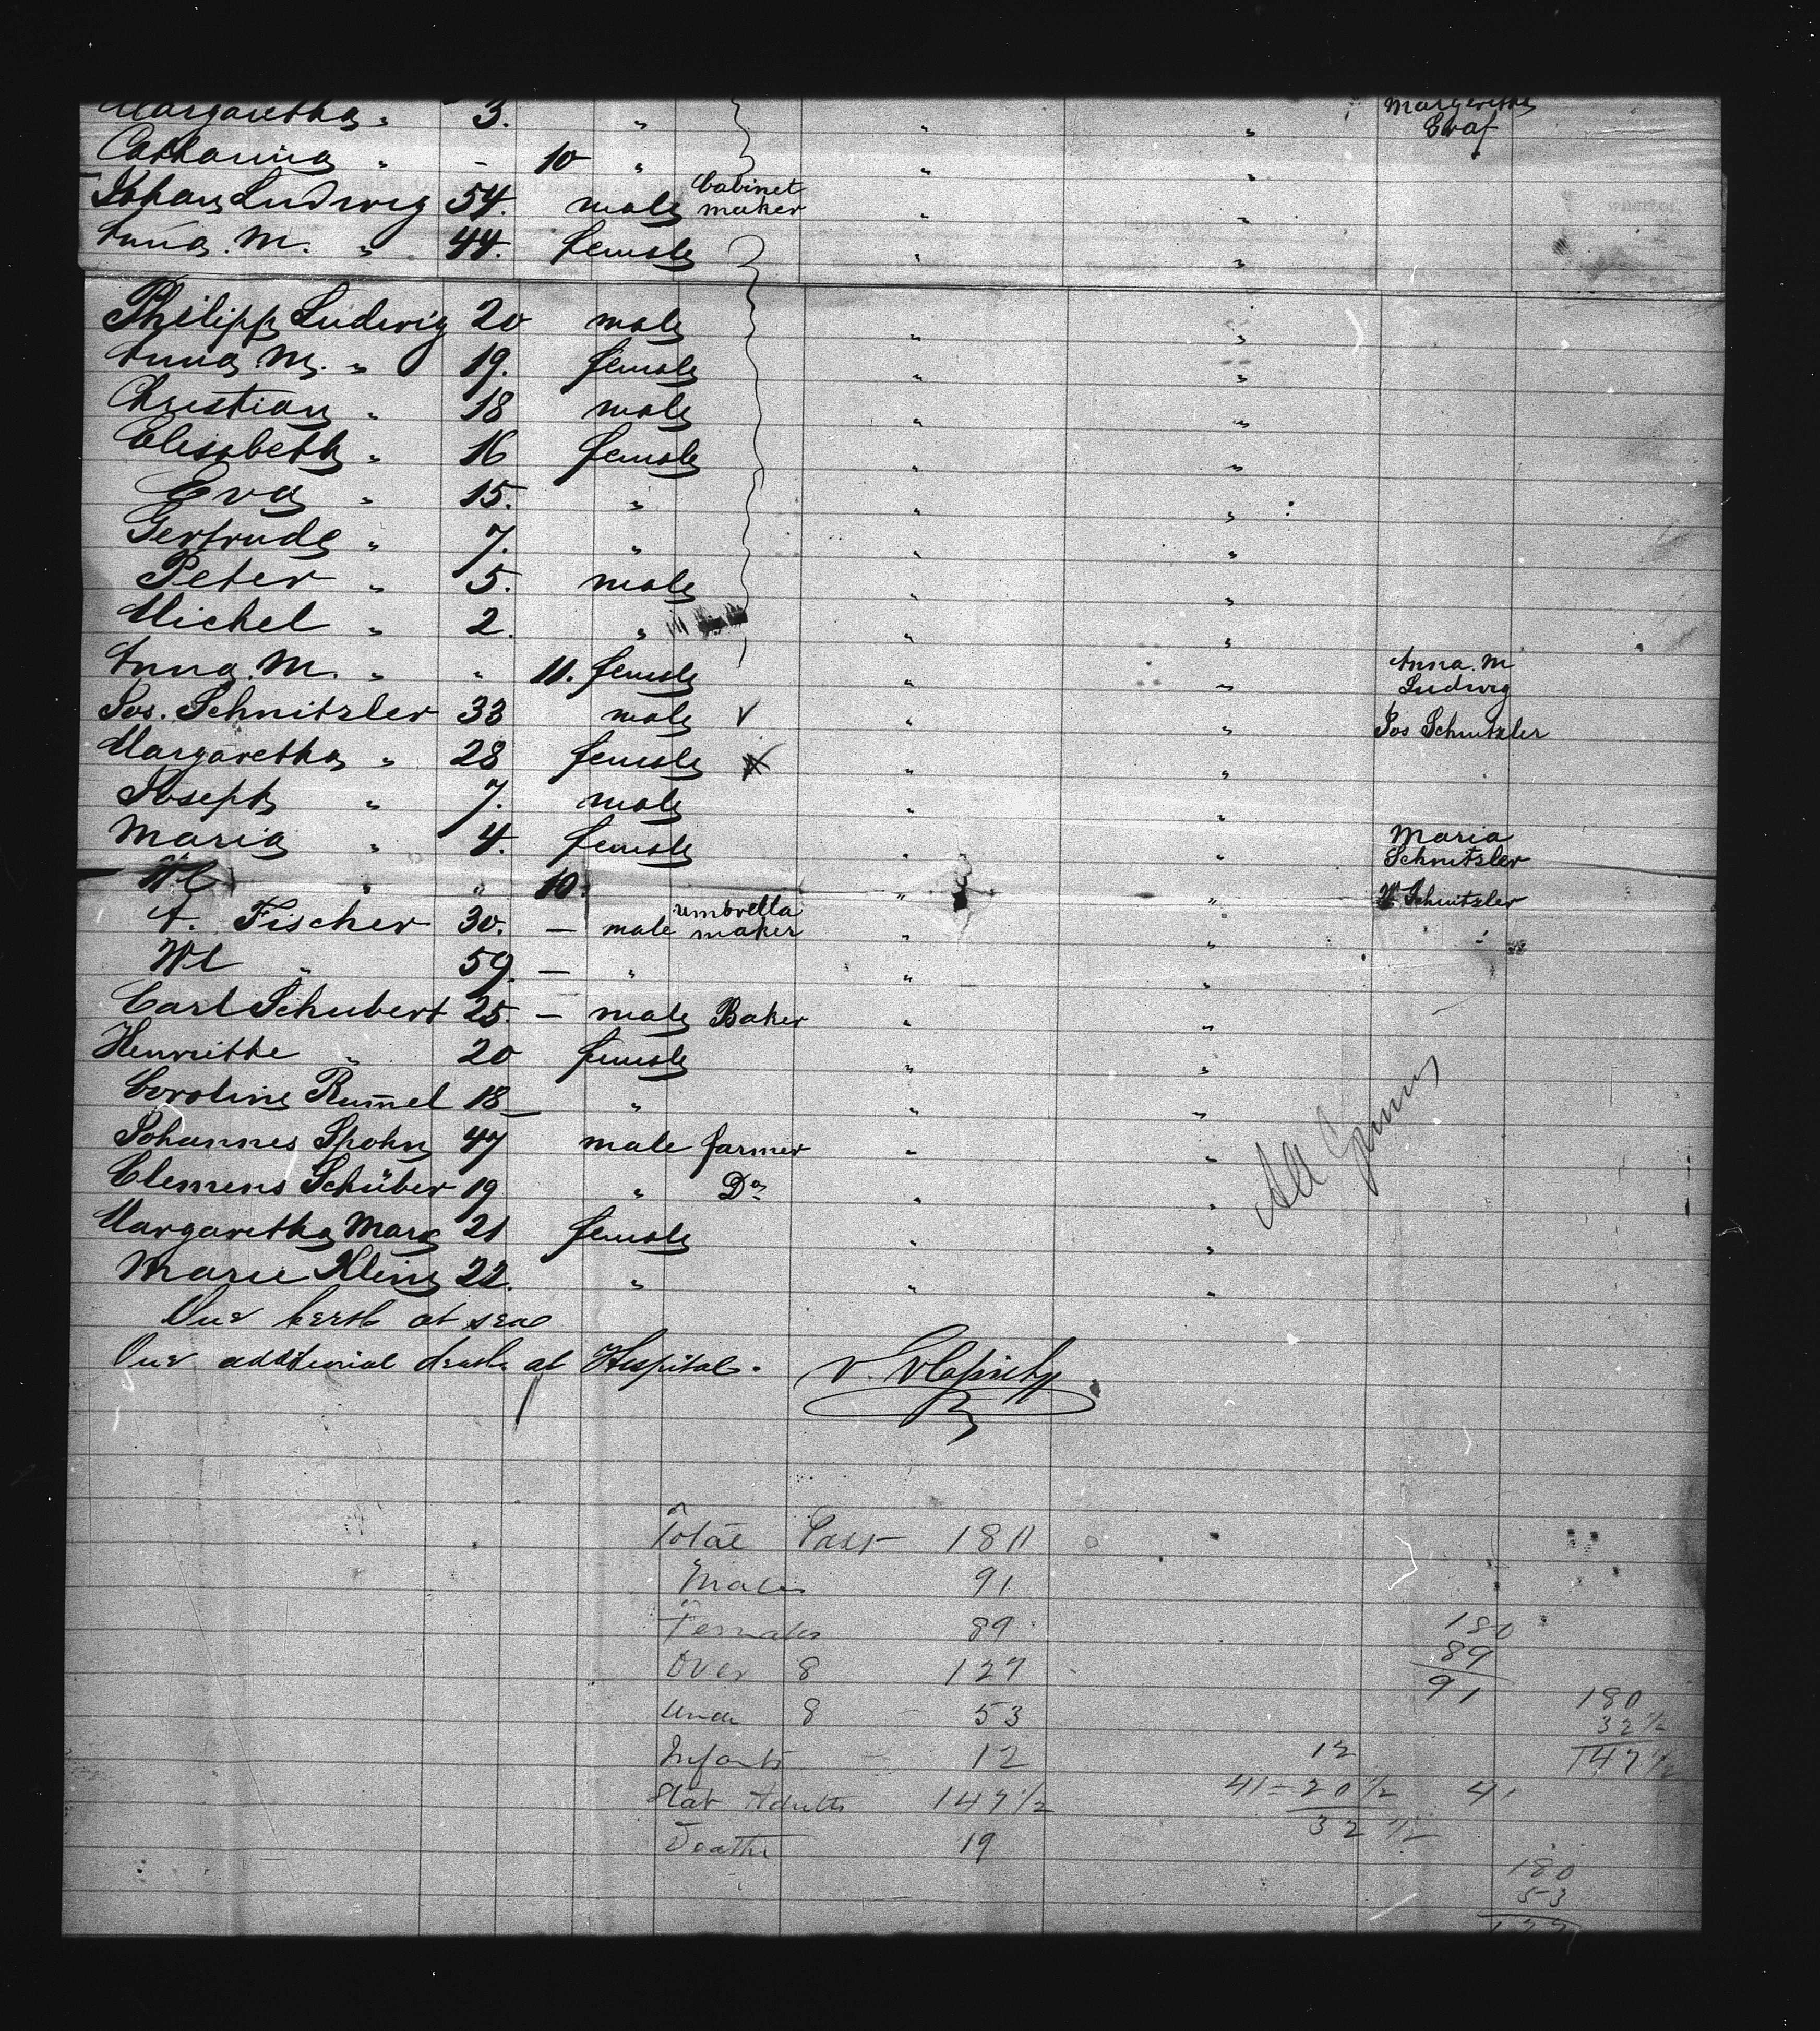 Margaretha " 3. " " " Margaretha
Graf
Catharina " - 10 " " "
Johann Ludwig 54. male Cabinet maker " "
Anna. M. " 44. female " "
Philipp Ludwig 20 male " "
Anna M. " 19. female " "
Christian " 18 male " "
Elisabeth " 16 female " "
Eva " 15. " " "
Gertrude " 7. " " "
Peter " 5. male " "
Michel " 2. " " "
Anna. M. " " 11. female " " Anna. M
Ludwig
Jos. Schnitzler 33 male V " " Jos Schnitzler
Margaretha " 28 female " "
Joseph " 7. male " "
Maria " 4. female " " Maria
Schnitzler
Wl " " 10. " " W Schnitzler
A. Fischer 30. — male umbrella maker " "
Wl " 59. — " " "
Carl Schubert 25. — male Baker " "
Henriette " 20 female " "
Caroline Rum̄el 18 — " " "
Johannes Spohn 47 male farmer " "
Clemens Schüber 19 " Do " "
Margaretha Marx 21 female " "
Marie Klein 22. " " "
All
One birth at sea
One additional death at Hospital.
Total Pass 180
Males 91
Females 89
Over 8 127
Under 8 53
Infants 12
Stat Adults 147 1/2
Deaths 19
180
89
91
180
32 1/2
147 1/2
12
41 = 20 1/2
32 1/2
41
180
53
127